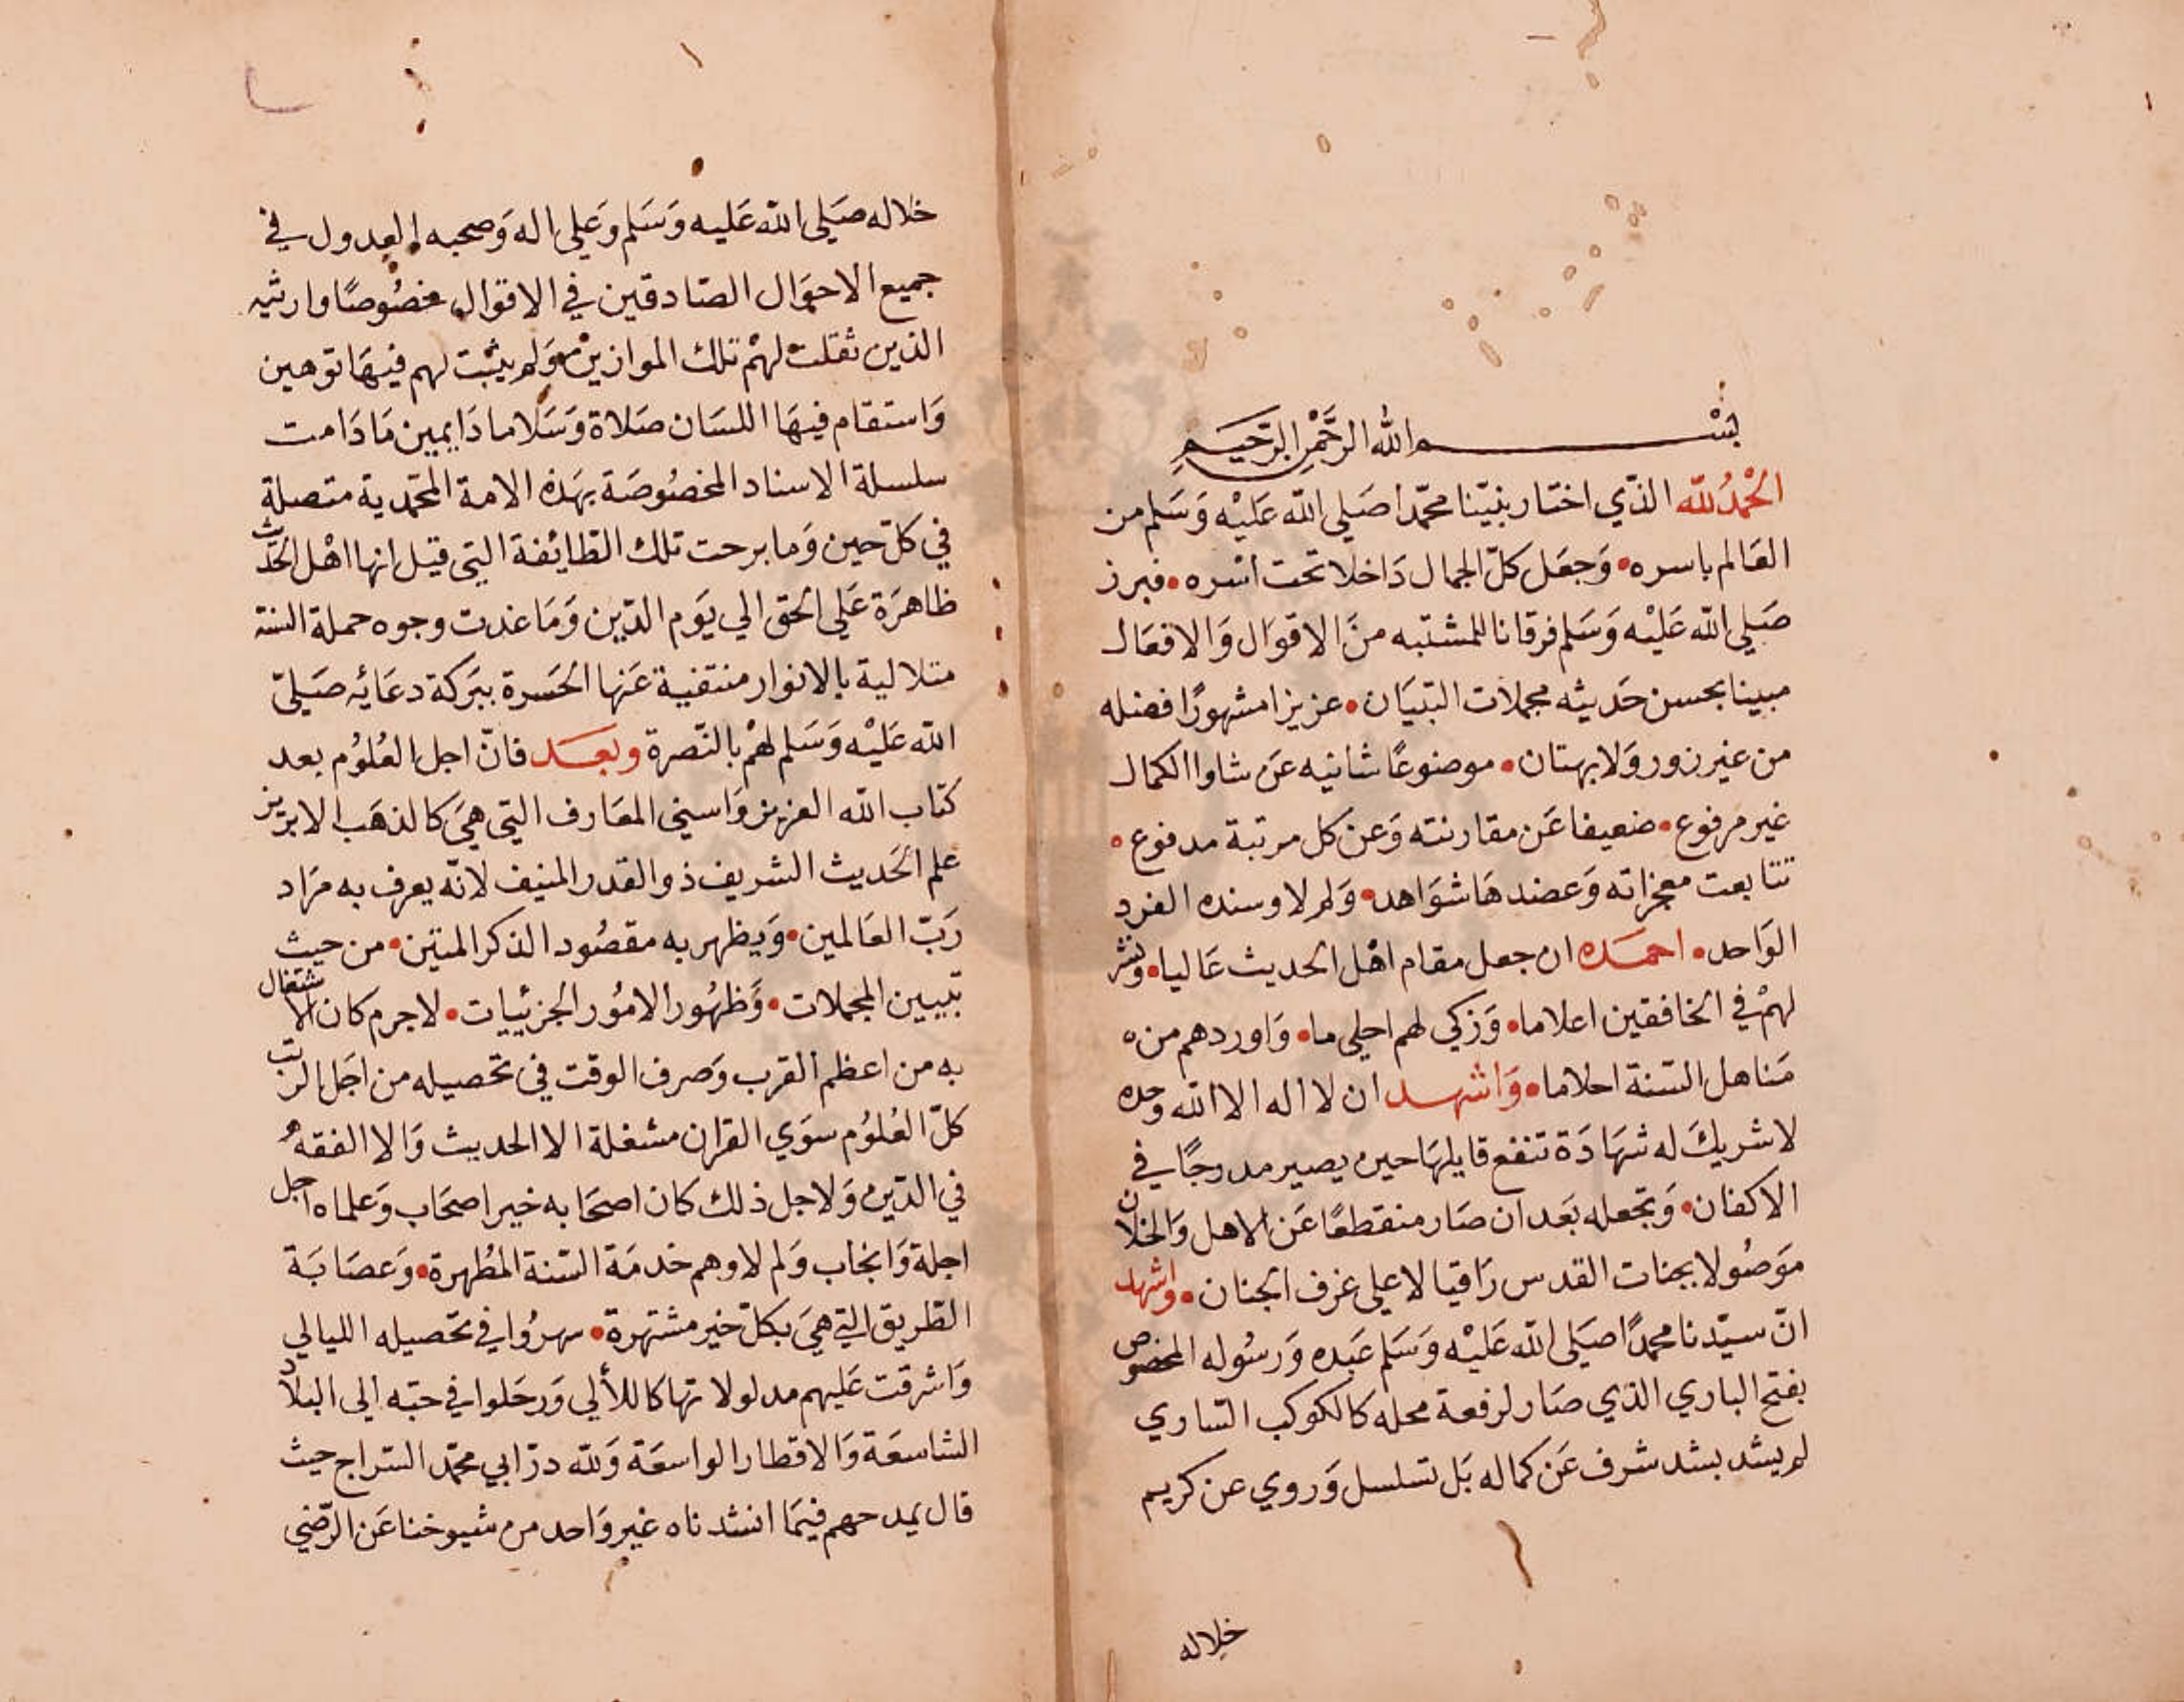 بسم الله الرحمن الرحيم
الحمد لله الذي اختار نبيّنا محمّدا صَلي الله عَليْه وَسَلم من
العَالم باسره • وَجعَل كلّ الجمال دَاخلا تحت اسْره • فبرز
صَلي الله عَليْه وَسَلم فرقانا للمشتبه منَ الاقوَال وَالافعَال
مبينا بحسن حَديثه مجملات التبيَان • عزيزا مشهورًا فضله
من غير زور وَلا بهتان • موضوعًا شانيه عَن شاوا الكمال
غير مرفوع • ضعيفا عَن مقارنته وَعن كل مرتبة مدفوع •
تتابعت معجزاته وَعضدهَا شوَاهد • وَلم لا وسنده الفرد
الوَاحد • احمَده ان جعل مقام اهْل الحديث عَاليا • ونشر
لهمْ في الخافقين اعلاما • وَزكي لهم احلي ما • وَاوردهم من ه
مَناهل السّنة احلاما • وَاشهد ان لا اله الا الله وحده
لا شريكَ له شهَادَة تنفع قايلهَا حين يصير مدرجًا في
الاكفان • وَتجعله بَعد ان صَار منقطعًا عَن الاهل وَالخلان
موَصُولا بجنات القدس رَاقيا لاعلي غرف الجنان • واشهد
انّ سيّدنا محمدًا صَلي الله عَليْه وَسَلم عَبده وَرسُوله المخصوص
بفتح الباري الذي صَار لرفعة محله كالكوكب السّاري
لم يشد بشد شرف عَن كماله بَل تسلسل وَروي عن كريم
خلاله
خلاله صَلي الله عَليه وَسَلم وَعلي اله وَصحبه العدول في
جميع الاحوَال الصّادقين في الاقوال خصُوصًا وارثيه
الذين ثقلت لهمْ تلك الموازين وَلم يثبت لهم فيهَا توهين
وَاستقام فيهَا اللسَان صَلاة وَسَلاما دَايمين مَا دَامت
سلسلة الاسناد المخصُوصَة بهَذه الامة المحمّدية متصلة
في كلّ حين وَما برحت تلك الطّايفة التي قيل انها اهْل الحَديث
ظاهرَة عَلي الحق الي يَوم الدّين وَمَا غدت وجوه حملة السّنة
متلالية بالانوار منتفية عَنها الحَسرة ببَركة دعَائه صَليّ
الله عَليْه وَسَلم لهمْ بالنّصرة وبعَد فانّ اجل العُلوُم بعد
كتاب الله العزيز وَاسني المعَارف التي هيَ كالذهَب الابريز
علم الحَديث الشريف ذو القدر المنيف لانّه يعرف به مرَاد
رَبّ العَالمين • وَيظهر به مقصُود الذكر المتين • من حيث
تبيين المجملات • وَظهُور الامُور الجزئيات • لا جرم كان الاشتغال
به من اعظم القرب وَصرف الوقت في تحصيله من اجَل الرتب
كلّ العُلوُم سوَي القرْان مشغلة الا الحديث وَالا الفقه
في الدّين وَلاجل ذلك كان اصحَابه خير اصحَاب وَعلماه اجل
اجلة وَانجاب وَلم لا وهم خدمَة السّنة المُطهرة • وَعصَابَة
الطّريق التي هيَ بكلّ خير مشتهرة • سهرُوا في تحصيله الليالي
وَاشرقت عَليهم مدلولاتها كاللألي وَرحَلوا في حبّه الي البلاد
الشاسعَة وَالاقطار الواسعَة وَلله درّ ابي محمّد السّراج حيث
قال يمدحهم فيمَا انشدناه غير وَاحد من شيوخنا عَن الرّضي